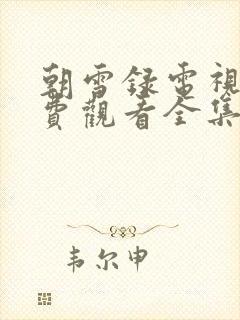 朝雪録電視
費觀看全集
韦尔申